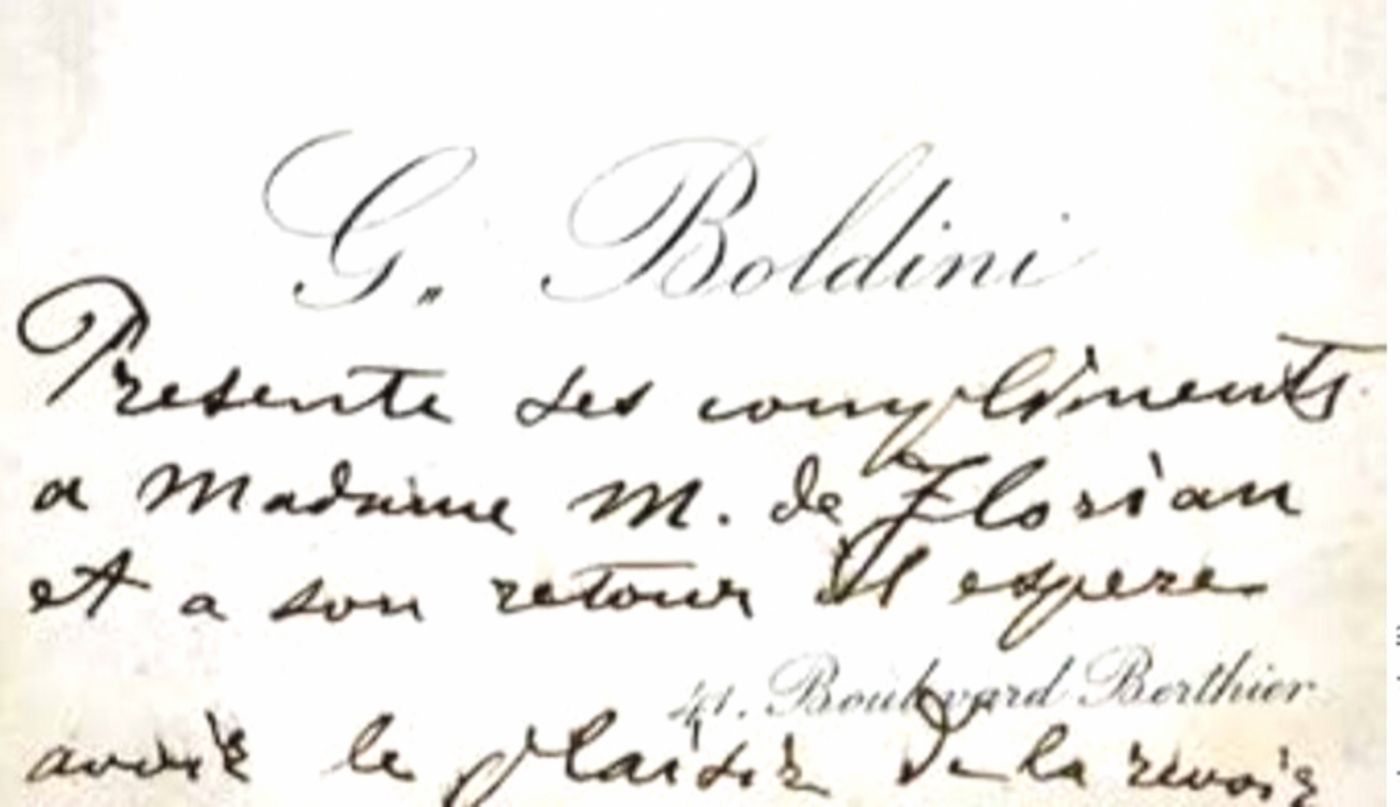 G. Boldini
Presente ses compliments
a Madame M. de Florian
et a son retour Il espere
41. Boulevard Berthier
avoir le plaisir de la revoir